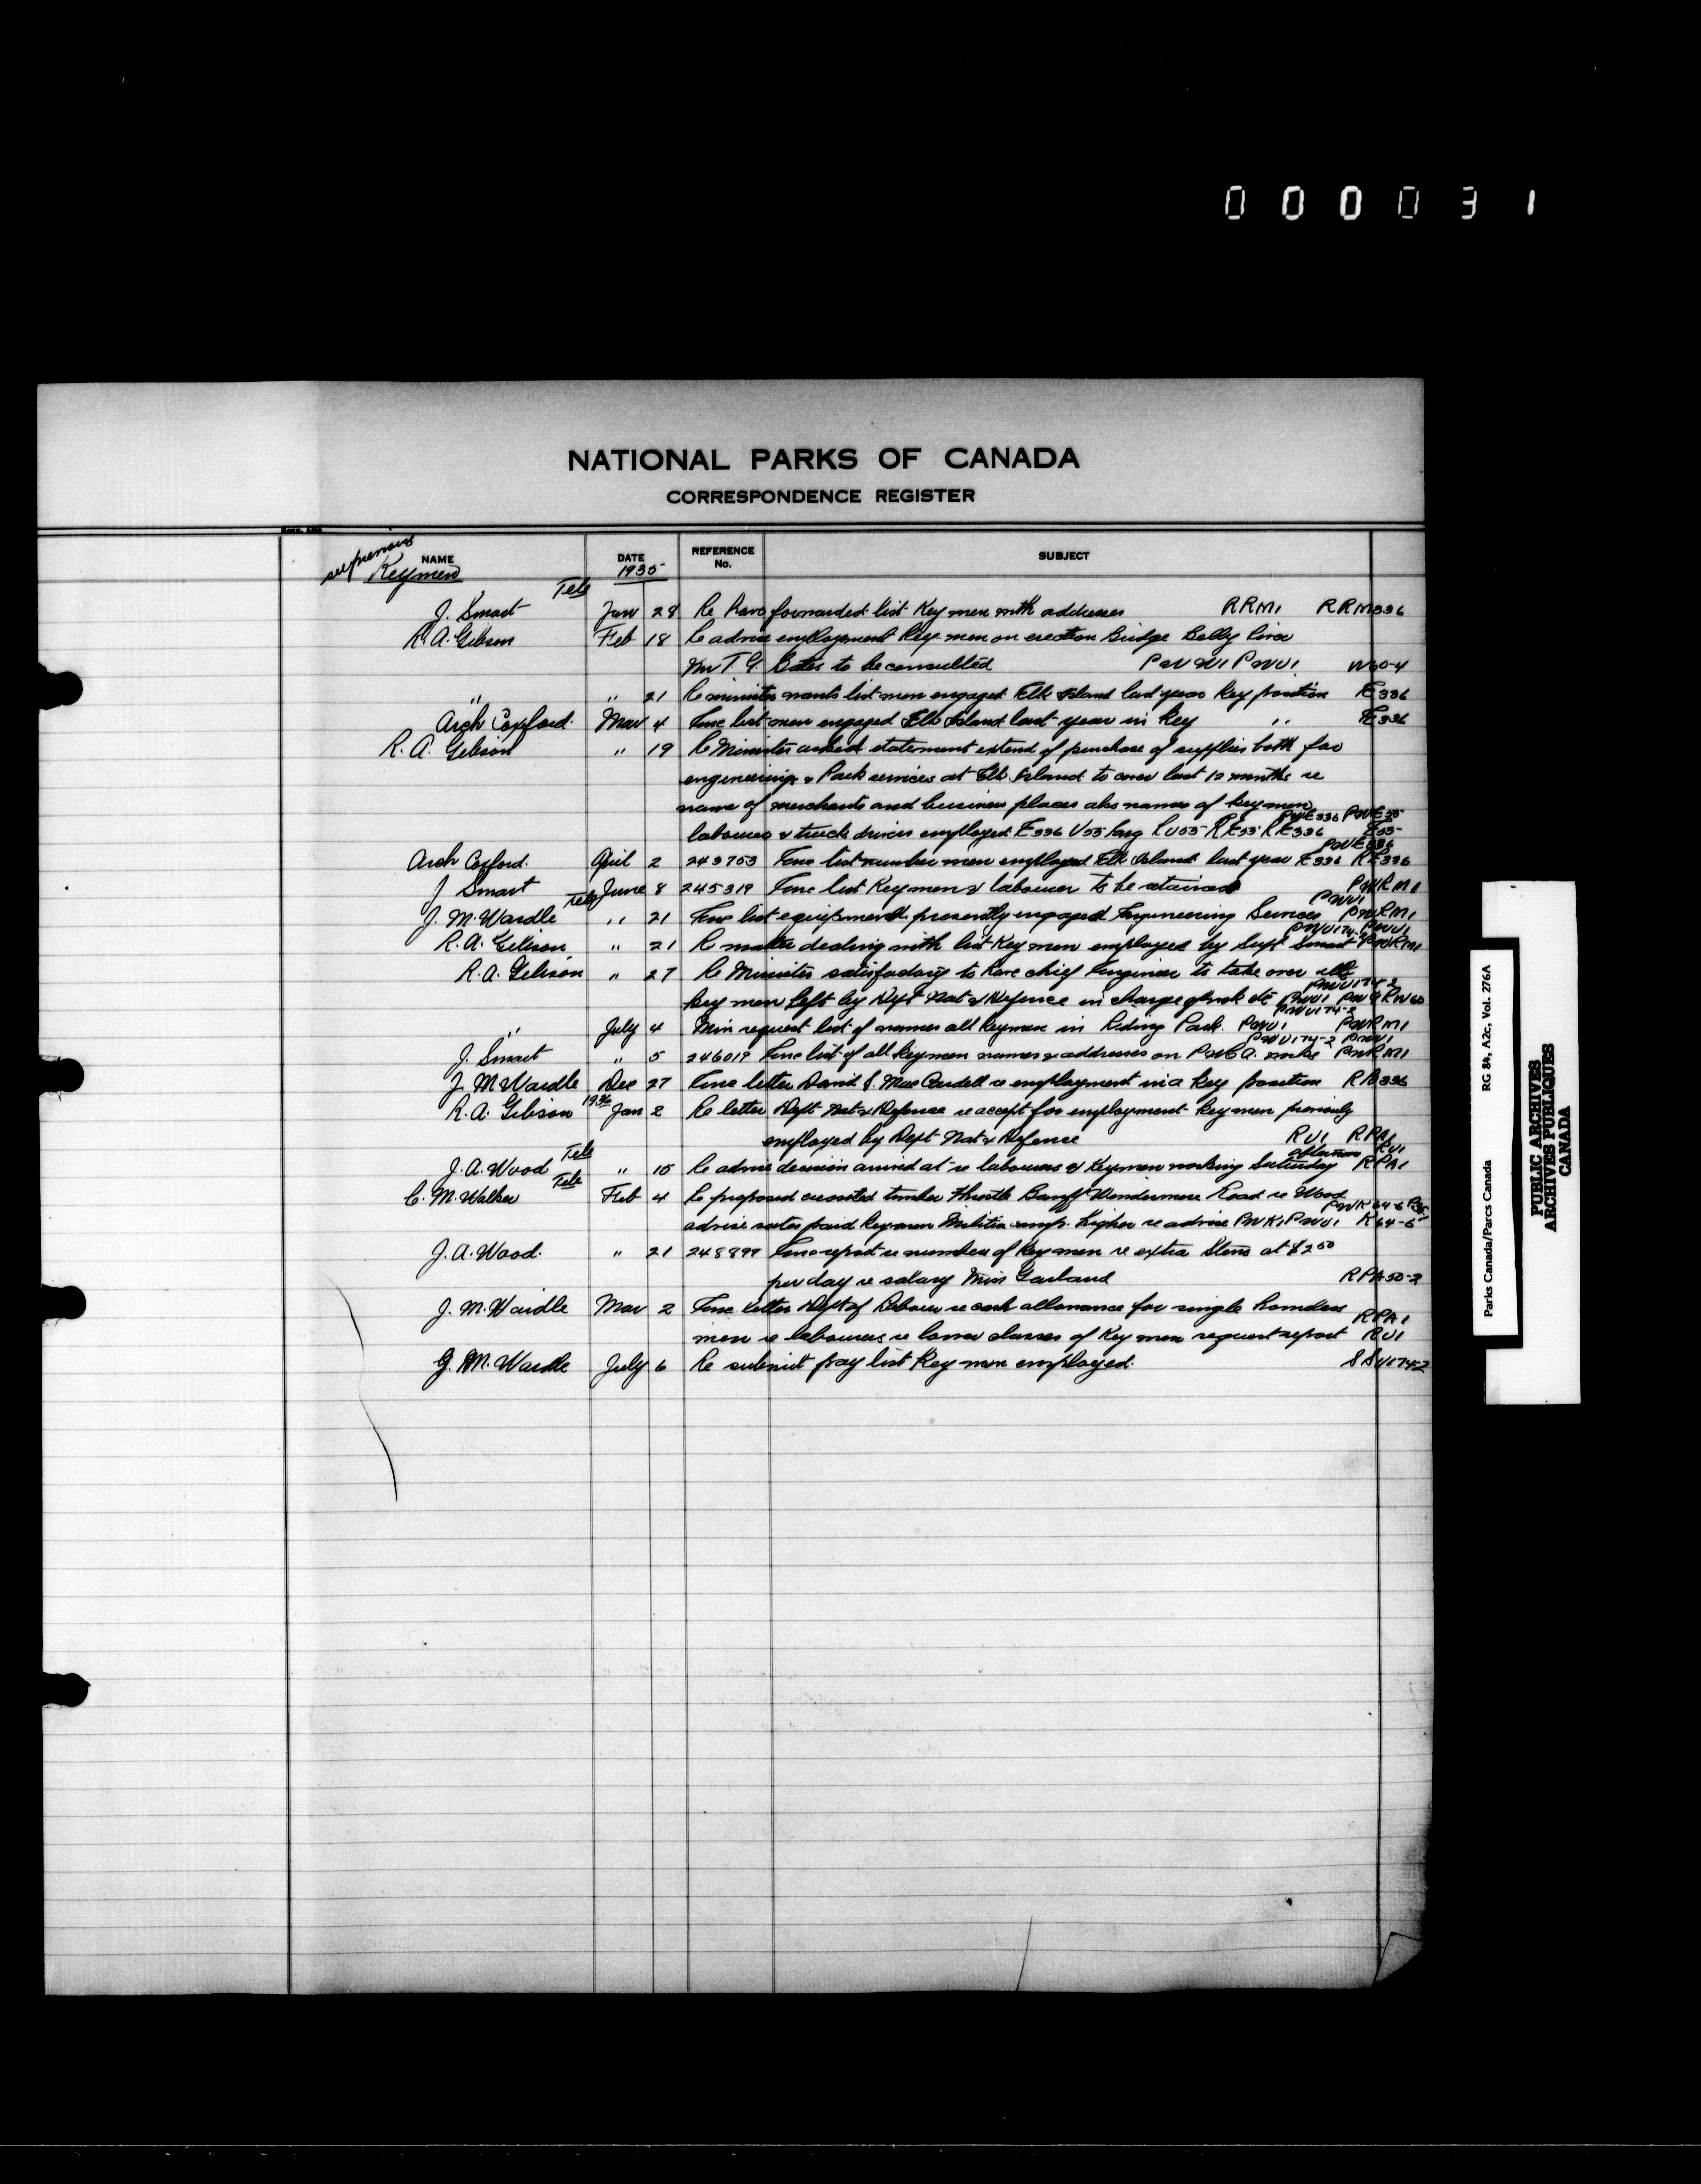 000031
NATIONAL PARKS OF CANADA
CORRESPONDENCE REGISTER
see previous
Keymen
NAME DATE REFERENCE No. SUBJECT
1935
J. Smart Tele Jan 28 Re have forwarded list Key men with addresses RRM1 RRM336
R.A. Gibson Feb 18 Re advise employment Key men on erection Bridge Belly River
Mr T.G. Bates to be consulted PWW1 PWU1 W60-4
" " 21 Re minister wants list men engaged Elk Island last year Key position E336
Arch Coxford. Mar 4 Enc list men engaged Elk Island last year in Key " E336
R.A. Gibson " 19 Re Minister asked statement extend of purchase of supplies both for
engineering & Park services at Elk Island to cover last 12 months re
name of merchants and business places also names of key men
PWE336 PWE55
labourers & truck drivers employed E336 U55 RU55 RE55 RE336 E55
PWE336
Arch Coxford. April 2 243753 Enc list number men employed Elk Island last year E336 RE336
J Smart June 8 245319 Enc list Key men & labourer to be retained PWRM1
PWU1
J.M. Wardle Tele " 21 Enc list equipment presently engaged Engineering Services PWRM1
PWU174-2 PWU1
R.A. Gibson " 21 Re matter dealing with list Key men employed by Supt Smart PWRM1
R.A. Gibson " 27 Re Minister satisfactory to have chief Engineer to take over all
PWU174-2
key men left by Dept Nat & Defence in charge of work etc PWU1 PWRW60
PWU174-2
" July 4 Min request list of names all keymen in Riding Park. PWU1 PWRM1
PWU174-2 PWU1
J. Smart " 5 246019 Enc list of all keymen names & addresses on PWCA. works PWRM1
J.M Wardle Dec 27 Enc letter David S. Mac Cardell re employment in a key position RB336
R.A. Gibson 1936 Jan 2 Re letter Dept Nat & Defense re accept for employment keymen previously
employed by Dept Nat & Defence RU1 RPA1
afternoon RU1
J.A. Wood Tele " 15 Re advise decision arrived at re labourers & Keymen working Saturday RPA1
C.M. Walker Tele Feb 4 Re proposed creosoted timber threstle Banff Windermere Road re Wood
PWK64-6
advise rates paid keymen Militia higher re advise PWK1 PWU1 K64-6
J.A. Wood. " 21 248899 Enc report re number of Key men re extra Steno at $2.50
per day re salary Miss Garland RPA50-2
J.M. Wardle Mar 2 Enc letter Dept of Labour re cash allowance for single homeless
RPA1
men re labourers re lower classes of Key men request report RU1
J.M. Wardle July 6 Re submit pay list Key men employed. SSU174-2
Parks Canada/Parcs Canada RG 84, A2c, Vol. 276A
PUBLIC ARCHIVES
ARCHIVES PUBLIQUES
CANADA